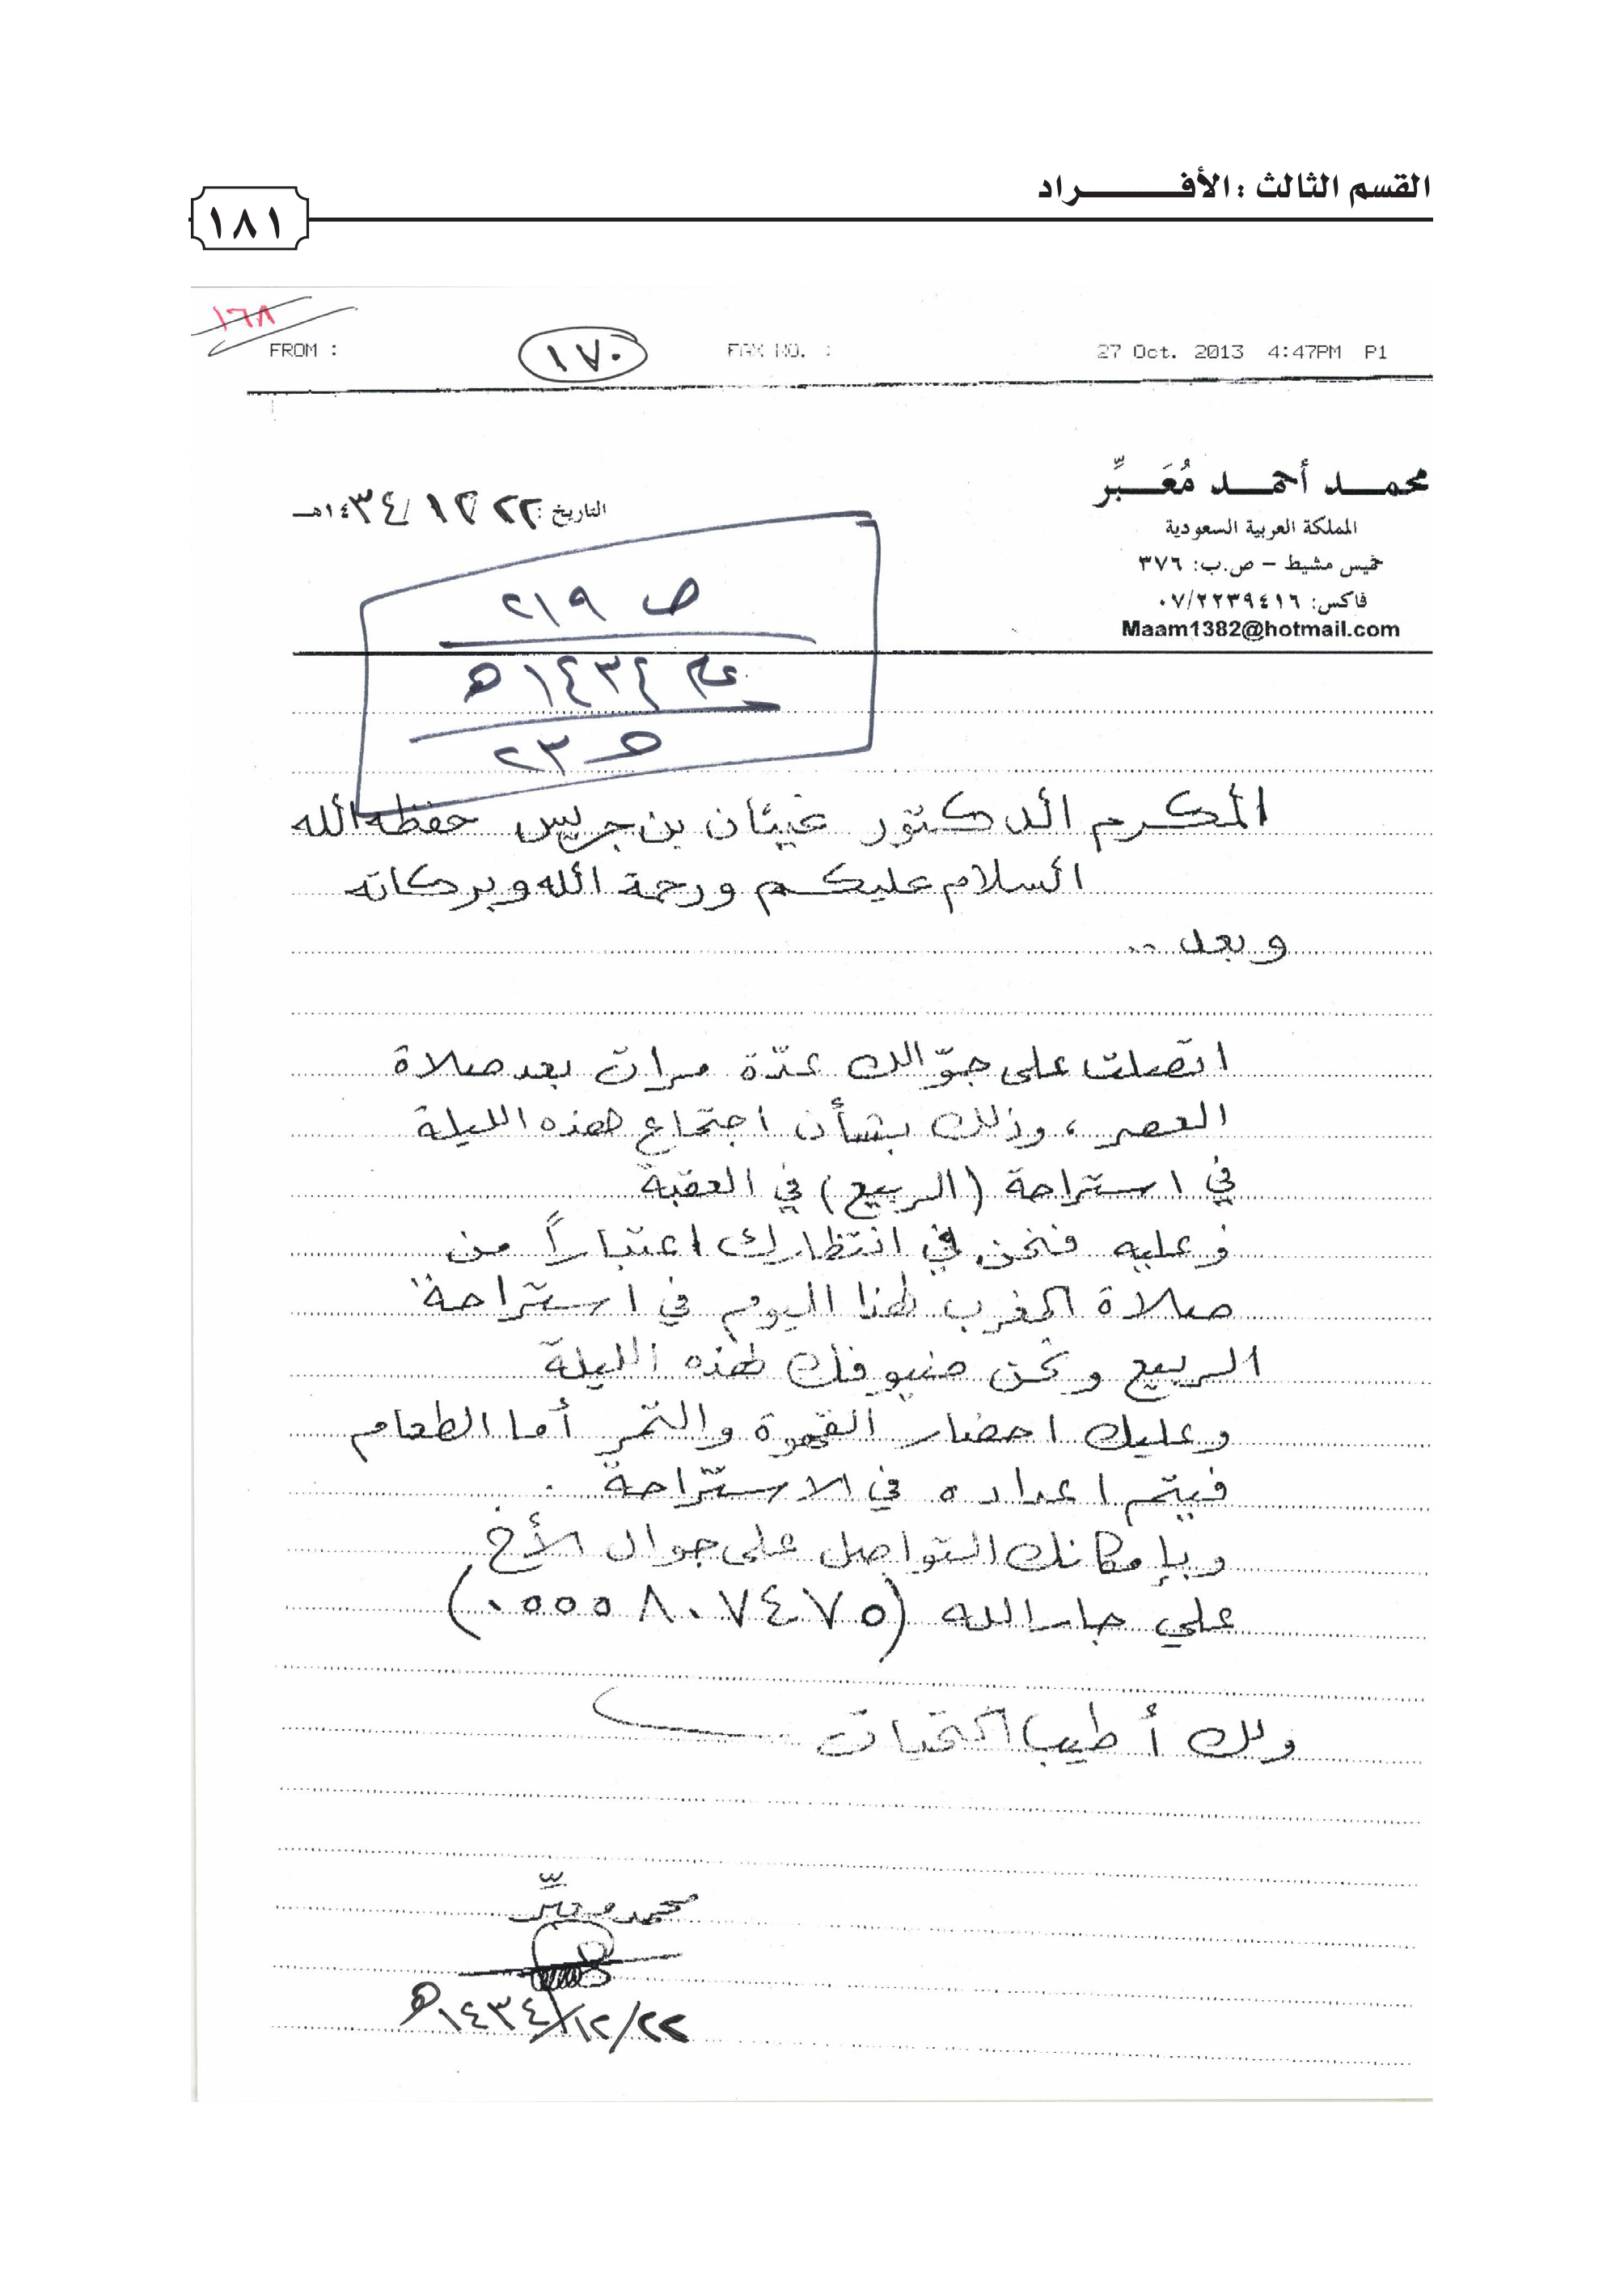 القسم الثالث : الأفـــراد
١٨١
١٦٨
FROM :
١٧٠
FAX NO. :
27 Oct. 2013 4:47PM P1
محمد أحمد مُعَبِّر
المملكة العربية السعودية
خميس مشيط – ص.ب: ٣٧٦
فاكس: ٠٧/٢٢٣٩٤١٦
Maam1382@hotmail.com
التاريخ : ٢٢/ ١٢/ ١٤٣٤هـ
ص ٢١٩
عام ١٤٣٤ هـ
هـ ٢٣
المكرم الدكتور غيثان بن جريس حفظه الله
السلام عليكم ورحمة الله وبركاته
وبعد ..
اتصلت على جوّالك عدّة مرات بعد صلاة
العصر ، وذلك بشأن اجتماع هذه الليلة
في استراحة (الربيع) في العقبة
وعليه فنحن في انتظارك اعتباراً من
صلاة المغرب هذا اليوم في استراحة
الربيع ونحن ضيوفك هذه الليلة
وعليك احضار القهوة والتمر أما الطعام
فيتم اعداده في الاستراحة .
وبإمكانك التواصل على جوال الأخ
علي جار الله (٠٥٥٥٨٠٧٤٧٥)
ولك أطيب التحيات
محمد معبّر
٢٢/١٢/١٤٣٤هـ